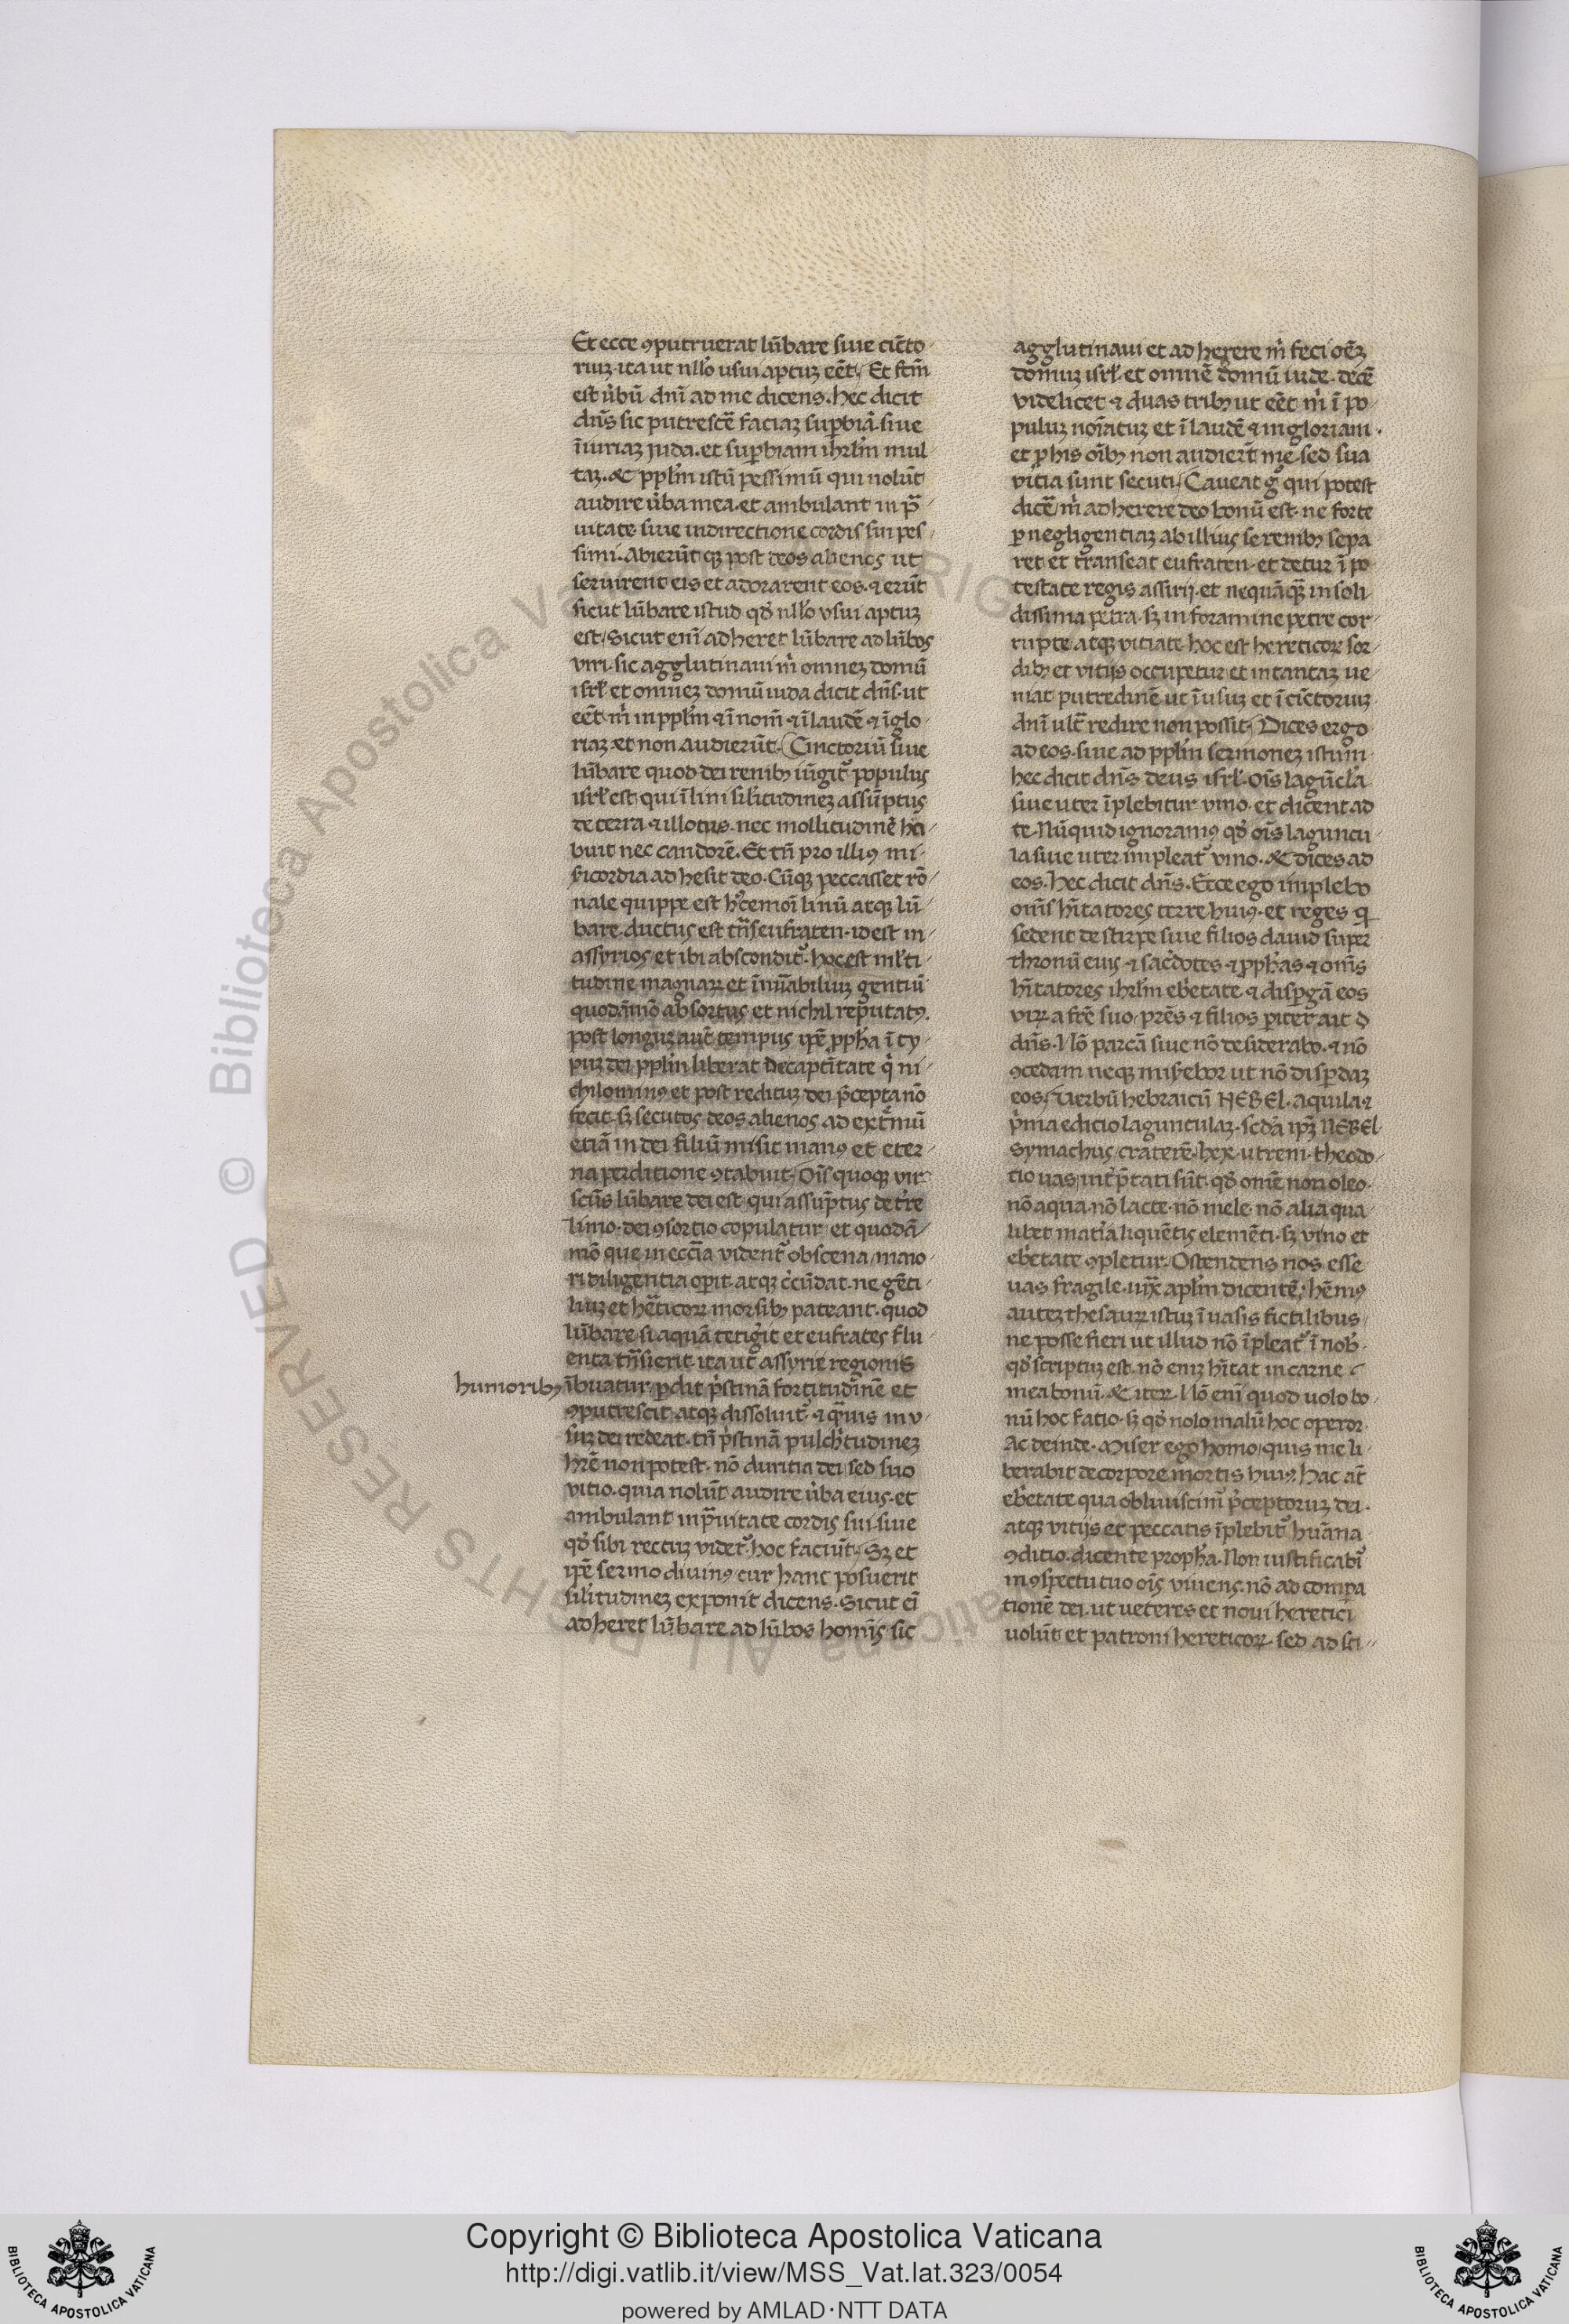 Et ecce ꝯputruerat lūbare siue cīcto
riuꝫ. ita ut nllō usui aptuꝫ eēt. Et fcm̄
est ūbū dnī ad me dicens. hec dicit
dn̄s sic putrescē faciaꝫ suꝑbiā. siue
iniuriaꝫ iuda. et suꝑbiam ihrlm̄ mul
taꝫ. & pplm̄ istū pessimū qui nolūt
audire ūba mea. et ambulant in p̄
uitate siue in directione cordis sui pes
simi. Abierūt qꝫ post deos alienos ut
seruirent eis et adorarent eos. ⁊ erūt
sicut lūbare istud qđ nllō usui aptuꝫ
est. Sicut enī adheret lūbare ad lūbos
viri. sic agglutinaui m̄ omneꝫ domū
isrl̄ et omneꝫ domū iuda dicit dn̄s. ut
eēt m̄ in pplm̄ ⁊ ī nom̄ ⁊ ī laudē ⁊ ī glo
riaꝫ et non audierūt. Cinctoriū siue
lūbare quod dei renibꝫ iūgit᷑ populus
isrl̄ est. qui ī lini silitudineꝫ assūptus
de terra ⁊ illotus. nec mollitudinē ha
buit nec candorē. Et tn̄ pro illiꝰ mi
sicordia adhesit deo. Cūqꝫ peccasset rō
nale quippe est hꝰcemoī linū atqꝫ lū
bare. ductus est tn̄s eufraten. id est in
assyrios et ibi abscondit᷑. hoc est ml̄ti
tudine magnaꝝ et īnūabiliuꝫ gentiū
quodāmō absortus et nichil reputatꝰ.
post longuꝫ aut̄ tempus ipē ꝓpha ī ty
puꝫ dei pplm̄ liberat de captītate q̄ ni
chilominꝰ et post redituꝫ dei p̄cepta nō
fecit. sꝫ secutos deos alienos ad ext̄mū
etiā in dei filiū misit manꝰ et eter
na perditione ꝯtabuit. Oīs quoqꝫ vir
scūs lūbare dei est. qui assūptus de t̄re
limo. dei ꝯsortio copulatur et quodā
mō que in ecclīa vident᷑ obscena maio
ri diligentia oꝑit. atqꝫ c̄cūdat. ne gēti
liuꝫ et hēticoꝝ morsibꝫ pateant. quod
lūbare si aquā tetigit et eufrates flu
enta tn̄sierit. ita ut assyrie regionis
humoribꝫ
ībuatur ꝑdit p̄stinā fortitudinē et
ꝯputrescit atqꝫ dissoluit᷑ ⁊ qūis in u
suꝫ dei redeat. tn̄ p̄stinā pulch̄tudineꝫ
hr̄e non potest. nō duritia dei sed suo
vitio. quia nolūt audire ūba eius. et
ambulant in p̄uitate cordis sui siue
qđ sibi rectuꝫ videt᷑ hoc faciūt. Sꝫ et
ipē sermo diuinꝰ cur hanc posuerit
silitudineꝫ exponit dicens. Sicut eī
adheret lūbare ad lūbos homīs sic
agglutinaui et adherere m̄ feci oēꝫ
domuꝫ isrl̄. et omnē domū iude. decē
videlicet ⁊ duas tribꝫ ut eēt m̄ ī po
puluꝫ noīatuꝫ et ī laudē ⁊ in gloriam.
et ꝓ his oībꝫ non audierūt me. sed sua
vitia sunt secuti. Caueat gͦ qui potest
dicē m̄ adherere deo bonū est. ne forte
ꝑ negligentiaꝫ ab illius se renibꝫ sepa
ret et transeat eufraten. et detur ī po
testate regis assirij. et nequāqꝫ in soli
dissima petra. sꝫ in foramine petre cor
rupte atqꝫ vitiate. hoc est hereticoꝝ sor
dibꝫ et vitijs occupetur et in tantaꝫ ue
niat putredinē ut ī usuꝫ et ī cīctoriuꝫ
dnī ult̄ redire non possit. Dices ergo
ad eos. siue ad pplm̄ sermoneꝫ istum
hec dicit dn̄s deus isrl̄. Oīs lagūcla
siue uter īplebitur vino. et dicent ad
te. Nūquid ignoramꝰ qđ oīs laguncu
la siue uter impleat᷑ vino. & dices ad
eos. Hec dicit dn̄s. Ecce ego implebo
omīs hītatores terre huiꝰ. et reges qͥ
sedent de stirpe siue filios dauid super
thronū eius ⁊ sac̄dotes ⁊ ꝓphas ⁊ omīs
hītatores ihrlm̄ eb̄etate. ⁊ dispgā eos
viꝝ a fr̄e suo. pr̄es ⁊ filios ꝑiter ait d̄
dn̄s. Nō parcā siue nō desiderabo. ⁊ nō
ꝯcedam neqꝫ mis̄ebor ut nō disꝑdaꝫ
eos. Uerbū hebraicū NEBEL. aquila ⁊
p̄ma editio lagunculaꝫ. scd̄a ip̄ꝫ NEBEL
Symachus craterē. lxx. utrem. theodo
tio uas int̄p̄tati sūt. qđ omē non oleo.
nō aqua. nō lacte. nō mele. nō alia qua
libet mat̄ia liquētis elemēti. sꝫ vino et
eb̄etate ꝯpletur. Ostendens nos esse
uas fragile. iux̄ aplm̄ dicentē. hēmꝰ
auteꝫ thesauꝝ istuꝫ ī vasis fictilibus
ne posse fieri ut illud nō īpleat᷑ ī nobꝫ.
qđ scriptuꝫ est. nō eniꝫ hītat in carne
mea bonū. & iteꝝ. Nō enī quod uolo bo
nū hoc fatio. sꝫ qđ nolo malū hoc operor.
Ac deinde. Miser ego homo quis me li
berabit de corpore mortis huiꝰ. Hac at̄
eb̄etate qua obliuiscim᷑ p̄ceptoruꝫ dei.
atqꝫ vitijs et peccatis īplebit᷑ huāna
ꝯditio. dicente propha. Non iustificabi᷑
in ꝯspectu tuo oīs viuens. nō ad compa
tionē dei. ut ueteres et noui heretici
uolūt et patroni hereticoꝝ. sed ad sci
Copyright © Biblioteca Apostolica Vaticana
http://digi.vatlib.it/view/MSS_Vat.lat.323/0054
powered by AMLAD·NTT DATA